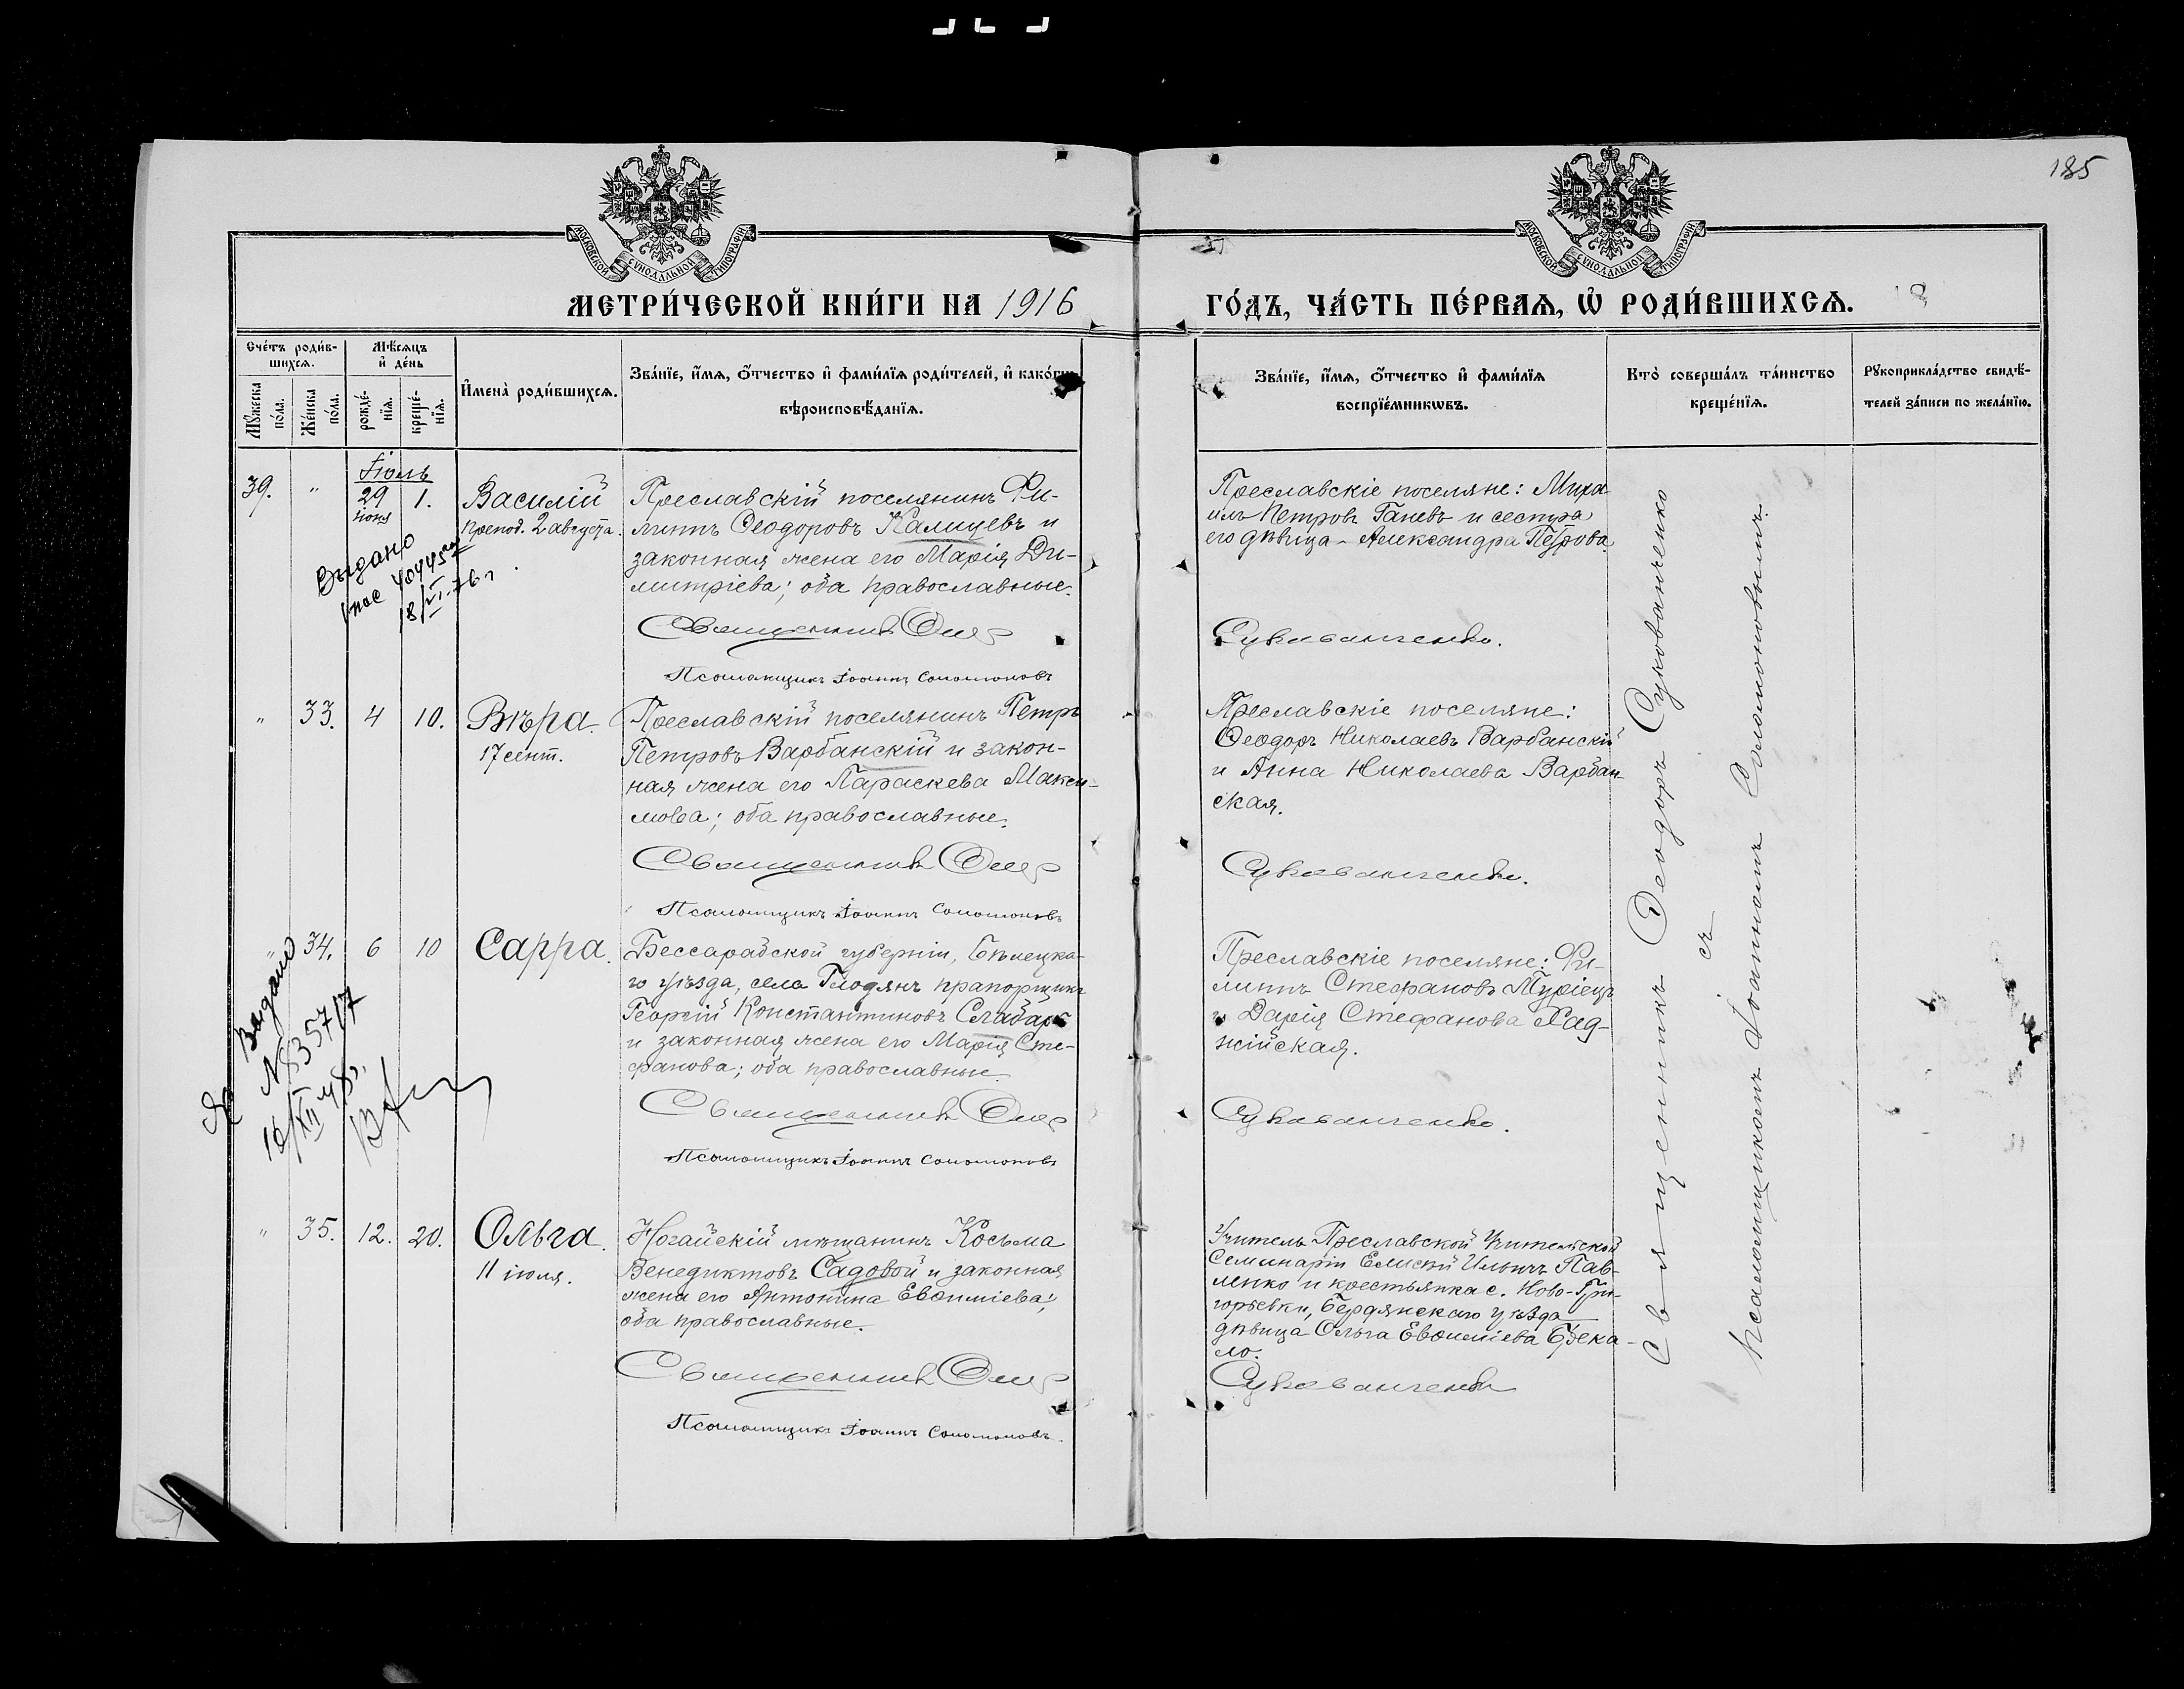 185
МОСКОВСКОЙ СѴНОДАЛЬНОЙ ТИПОГРАФІИ
МОСКОВСКОЙ СѴНОДАЛЬНОЙ ТИПОГРАФІИ
МЕТРИ́ЧЕСКОЙ КНИ́ГИ НА 1916
ГО́ДЪ, ЧА́СТЬ ПЕ́РВАѦ, Ѡ҆ РОДИ́ВШИХСѦ.
Сче́тъ роди́в-
шихсѧ.
Мꙋ́жеска
по́ла.
Же́нска
по́ла.
Мѣ́сѧцъ
и҆ де́нь
рожде́-
нїѧ.
креще́-
нїѧ.
И҆мена̀ роди́вшихсѧ.
Зва́нїе, и҆́мѧ, ѻ҆́тчество и҆ фами́лїѧ роди́телей, и҆ како́гѡ
вѣроисповѣ́данїѧ.
Зва́нїе, и҆́мѧ, ѻ҆́тчество и҆ фами́лїѧ
воспрїе́мникѡвъ.
Кто̀ соверша́лъ та́инство
креще́нїѧ.
Рꙋкоприкла́дство свидѣ́-
телей за́писи по жела́нїю.
Іюль
39. " 29 іюня 1. Василій
Препод. 2 августа.
Выдано
18/VI-76 г
Преславскій поселянинъ Фи-
липпъ Ѳеодоровъ Калицевъ и
законная жена его Марія Ди-
митріева; оба православные.
Священникъ Ѳеод
Псаломщикъ Іоаннъ Соломоновъ
Преславскіе поселяне: Миха-
илъ Петровъ Ганевъ и сестра
его дѣвица - Александра Петрова.
Сукованченко.
" 33. 4 10. Вѣра.
17 сент.
Преславскій поселянинъ Петръ
Петровъ Варбанскій и закон-
ная жена его Параскева Макси-
мова; оба православные.
Священникъ Ѳеод
Псаломщикъ Іоаннъ Соломоновъ
Преславскіе поселяне:
Ѳеодоръ Николаевъ Варбанскій
и Анна Николаева Варбан-
ская.
Сукованченко.
" 34. 6 10 Сарра.
Выдано
Бессарабской губерніи, Бѣлецка-
го уѣзда, села Глодянъ прапорщикъ
Георгій Константиновъ
и законная жена его Марія Сте-
фанова; оба православные.
Священникъ Ѳеод
Псаломщикъ Іоаннъ Соломоновъ
Преславскіе поселяне: Фи-
липпъ Стефановъ
и Дарія Стефанова Хад-
жійская.
Сукованченко.
" 35. 12. 20. Ольга.
11 іюля.
Ногайскій мѣщанинъ Косьма
Венедиктовъ Садовой и законная
жена его Антонина Евѳиміева;
оба православные.
Священникъ Ѳеод
Псаломщикъ Іоаннъ Соломоновъ.
Учитель Преславской Учительской
Семинаріи Елисей Ильичъ Пав-
ленко и крестьянка с. Ново-Гри-
горьевки, Бердянскаго уѣзда
дѣвица Ольга Евѳиміева
ло.
Сукованченко
Священникъ Ѳеодоръ Сукованченко
съ
псаломщикомъ Іоанномъ Соломоновымъ.